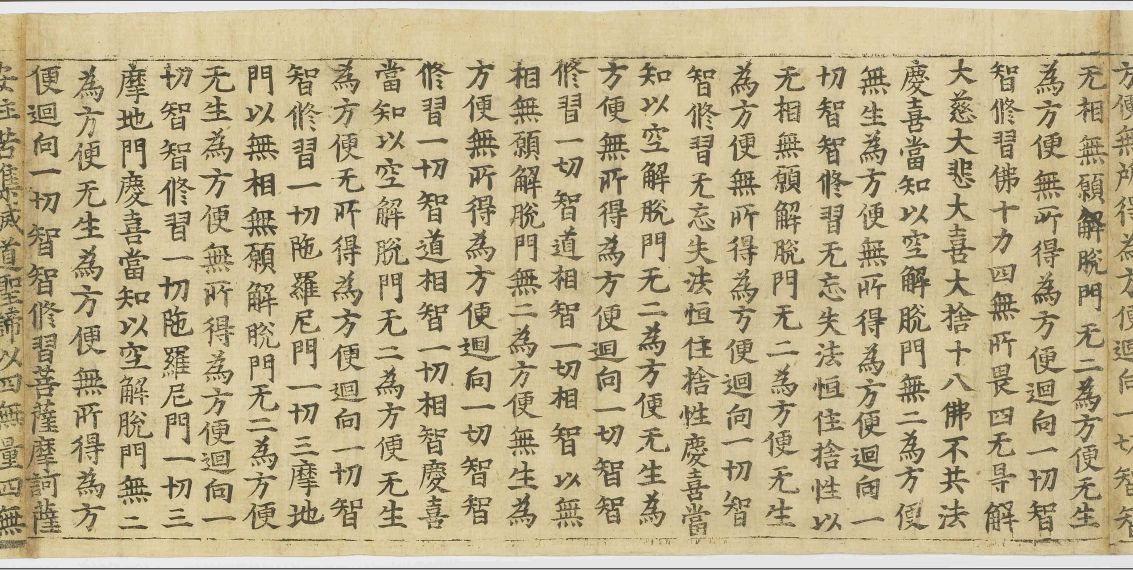 方便無所得為方便迴向一切智智
无相無願解脫門无二為方便无生
為方便無所得為方便迴向一切智
智修習佛十力四無所畏四无㝵解
大慈大悲大喜大捨十八佛不共法
慶喜當知以空解脫門無二為方便
無生為方便無所得為方便迴向一
切智智修習无忘失法恒住捨性以
无相無願解脫門无二為方便无生
為方便無所得為方便迴向一切智
智修習无忘失法恒住捨性慶喜當
知以空解脫門无二為方便无生為
方便無所得為方便迴向一切智智
修習一切智道相智一切相智以無
相無願解脫門無二為方便無生為
方便無所得為方便迴向一切智智
修習一切智道相智一切相智慶喜
當知以空解脫門无二為方便无生
為方便无所得為方便迴向一切智
智修習一切陁羅尼門一切三摩地
門以無相無願解脫門无二為方便
无生為方便無所得為方便迴向一
切智智修習一切陁羅尼門一切三
摩地門慶喜當知以空解脫門無二
為方便无生為方便無所得為方
便迴向一切智智修習菩薩摩訶薩
安住苦集滅道聖諦以四無量四無